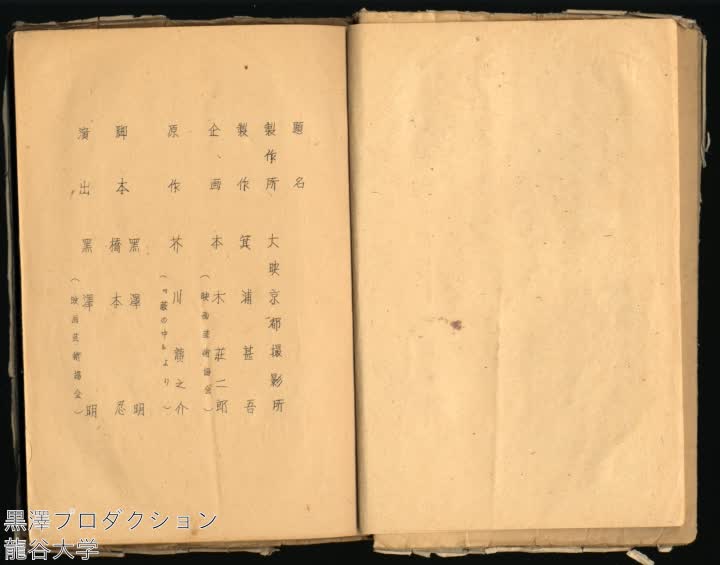 題名
製作所 大映京都撮影所
製作 箕浦甚吾
企画 本木荘二郎
(映画芸術協会)
原作 芥川龍之介
(「藪の中」より)
脚本 黑澤明
橋本忍
演出 黑澤明
(映画芸術協会)
黒澤プロダクション
龍谷大学